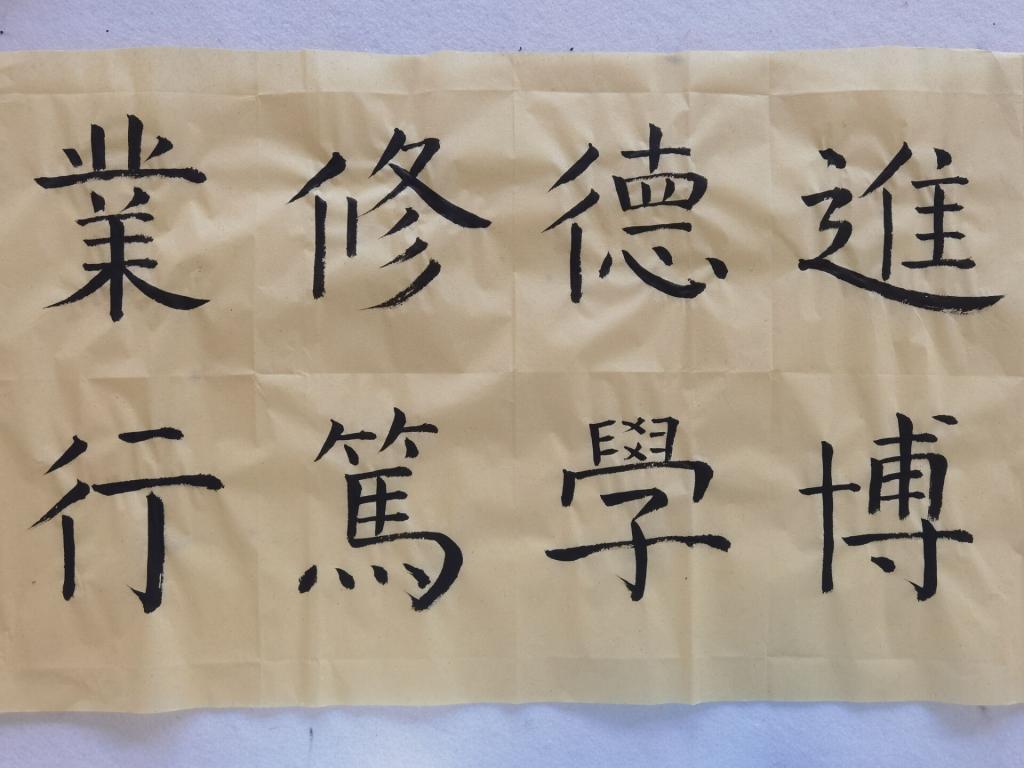 進德修業
博學篤行